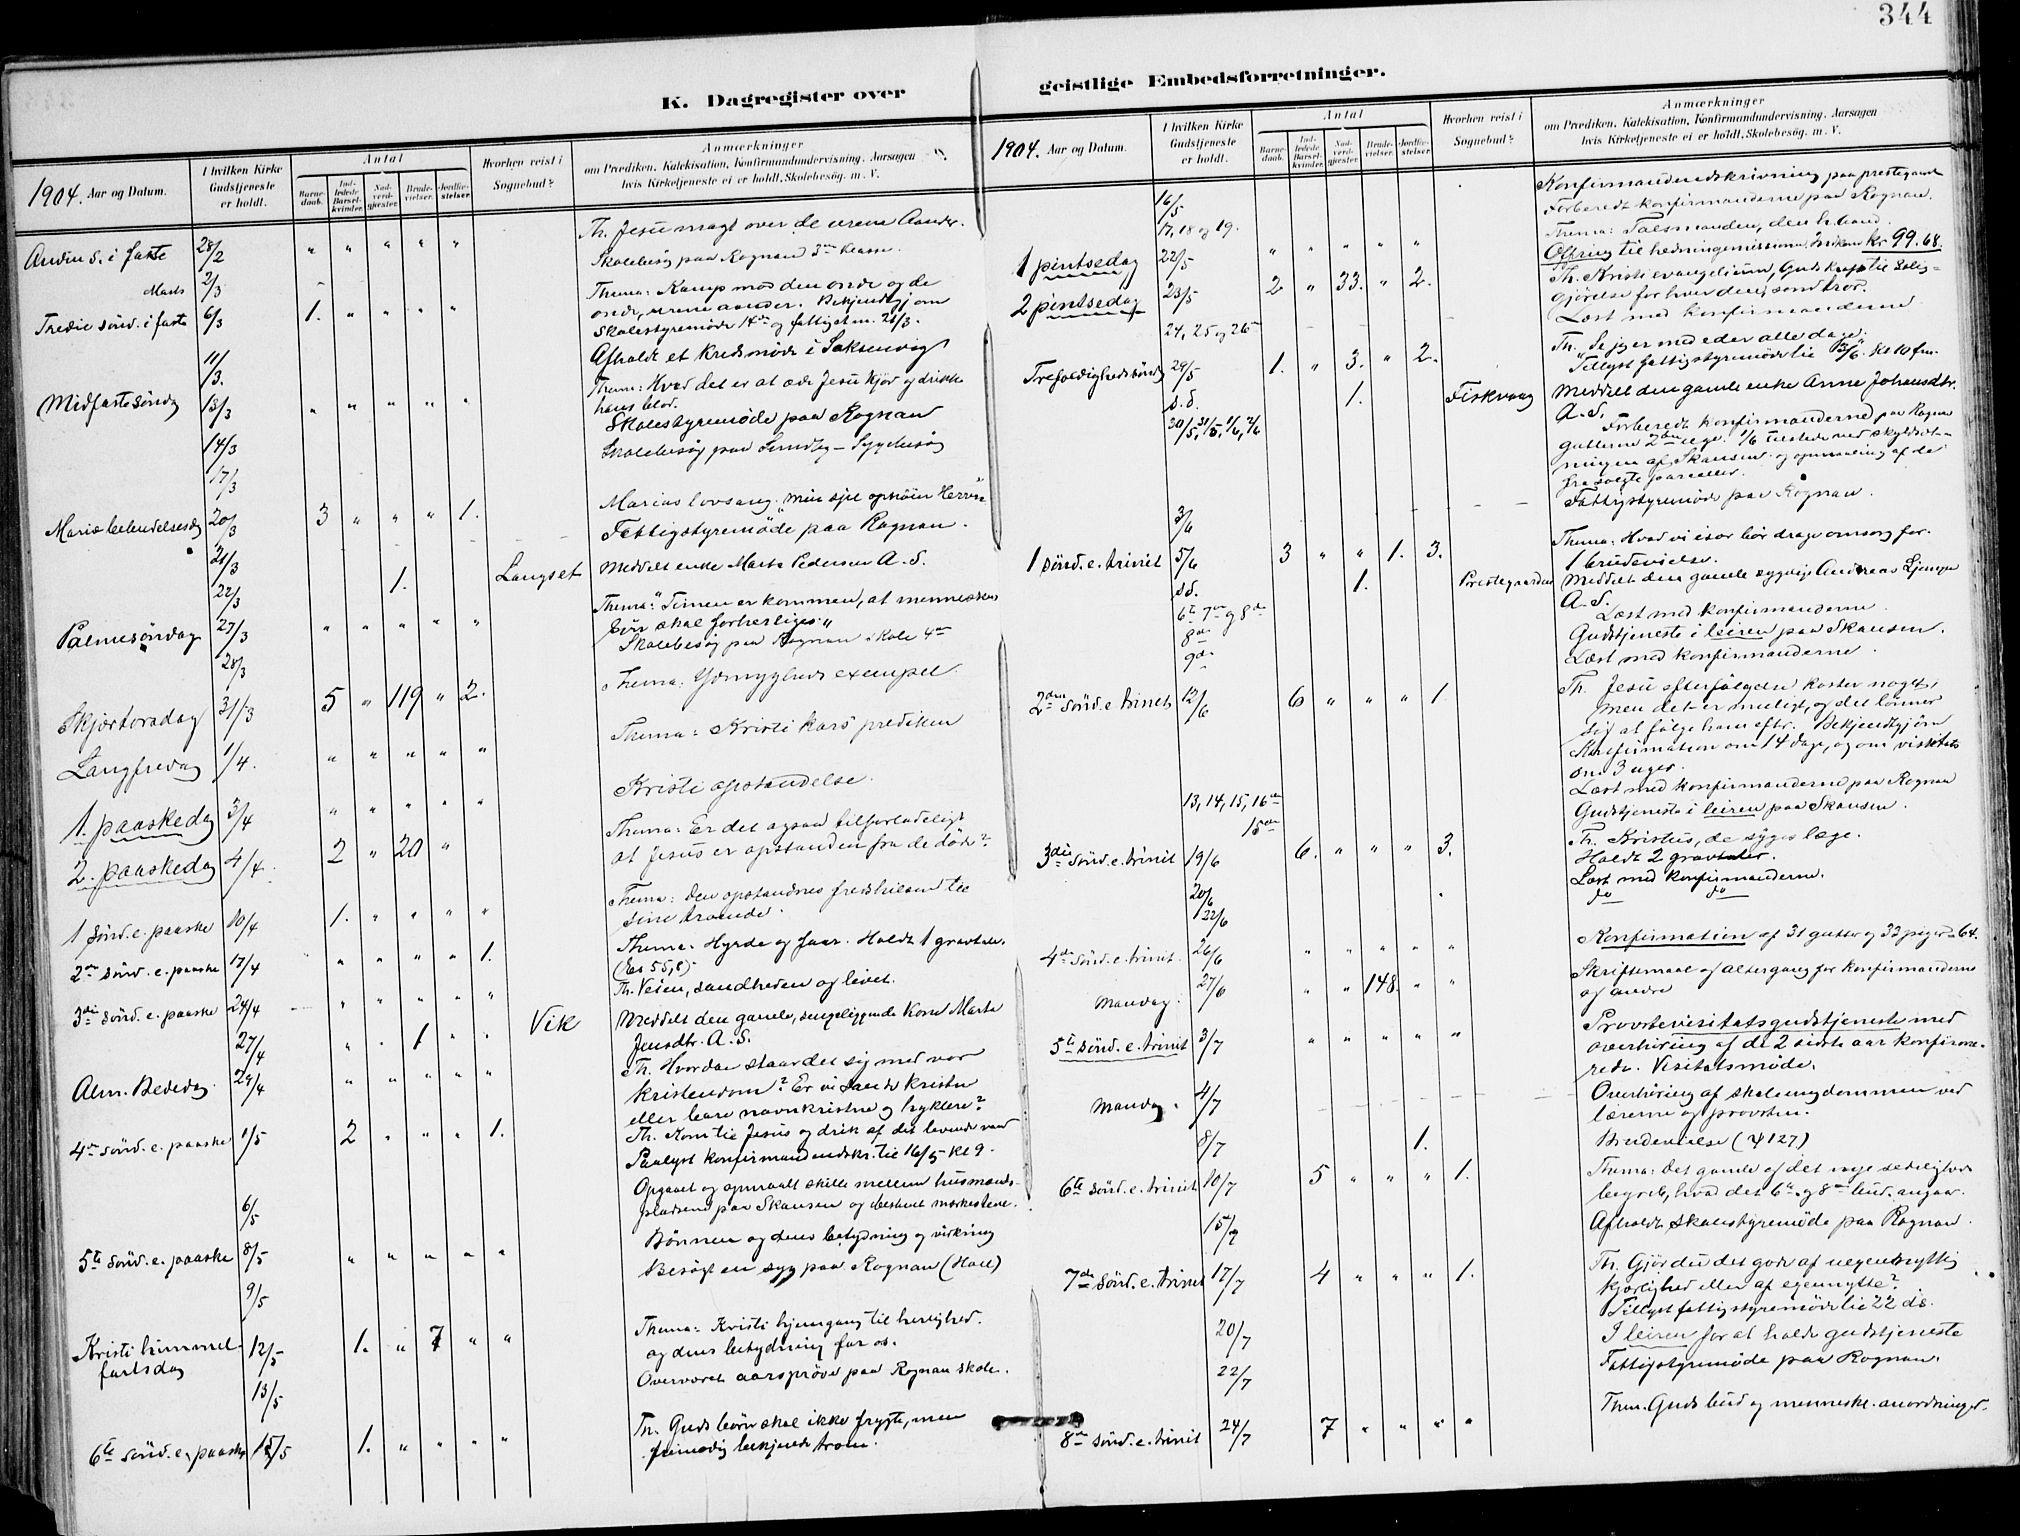 344
K. Dagregister over
geistlige Embedsforretninger.
1904. Aar og Datum.
I hvilken Kirke Gudstjeneste er holdt.
Antal
Barne-daab.
Ind-ledede Barsel-kvinder.
Nad-verd-gjester.
Brude-vielser.
Jordfæ-stelser.
Hvorhen reist i Sognebud?
Anmærkninger
om Prædiken, Katekisation, Konfirmandundervisning, Aarsagen
hvis Kirketjeneste ei er holdt, Skolebesøg, m. V.
Anden S. i faste 28/2 " " " " " Th. Jesu magt over de urene Aander.
Marts 2/3 Skolebesøg paa Rognan 3die klasse.
Tredie sønd. i faste 6/3 1. " " " " Thema: Kamp mod den onde og de
onde, urene aander. Bekjendtgj. om
Skolestyremøde 14de og fattigst.m. 21/3.
11/3. Afholdt et kredsmøde i Saksenvig
Midfastesøndag 13/3 " " " " " Thema: Hvad det er at æde Jesu kjød og drikke
hans blod.
14/3 Skolestyremøde paa Rognan
17/3 Skolebesøg paa Sundby - Sygebesøg
Mariæ bebudelsesdag 20/3 3 " " " 1. Marias lovsang: "Min sjel ophøier Herren"
21/3 Fattigstyremøde paa Rognan.
22/3 1. Langset Meddelt enke Marta Pedersen A. S.
Palmesøndag 27/3 " " " " " Thema: "Timen er kommen, at menneskens
søn skal forherliges"
28/3 Skolebesøg paa Rognan skole 4de
Skjærtorsdag 31/3 5 " 119 " 2. Thema: Ydmygheds exempel
Langfredag 1/4. " " " " " Thema: Kristi kors prediken
1. paaskedag 3/4 " " " " " Kristi opstandelse.
2. paaskedag 4/4. 2 " 20 " Thema: Er det ogsaa tilforladeligt
at Jesus er opstanden fra de døde?
1 sønd. e. paaske 10/4 1. " " " " Thema: Den opstandnes fredshilsen til
sine troende.
2den sønd. e. paaske 17/4 " " " " 1. Thema: Hyrde og faar. Holdt 1 gravtale.
(Es 55,8).
3die sønd. e. paaske 24/4 " " " " " Th. Veien, sandheden og livet.
27/4 " " 1 " " Vik Meddelt den gamle, sengeliggende kone Marte
Jensdtr. A. S.
Alm. Bededag 29/4 " " " " " Th. Hvordan staar det sig med vor
kristendom? Er vi sande kristne
eller bare navnkristne og hyklere?
4de sønd. e. paaske 1/5 2 " " " 1. Th. Kom til Jesus og drik af det levende vand
Paalyst konfirmandindskr. til 16/5 kl 9.
6/5 Opgaaet og opmaalt skille mellem husmands-
pladsene paa Skansen og bestemt merkestene.
5te sønd. e. paaske 8/5 " " " " " Bønnen og dens betydning og virkning
9/5 Besøgt en syg paa Rognan (Hall)
Kristi himmel-
fartsdag 12/5 1. " 7 " " Thema: Kristi hjemgang til herlighed.
og dens betydning for os.
13/5 Overværet aarsprøve paa Rognan skole.
6te sønd. e. paaske 15/5 1. " " " " Th. Guds børn skal ikke frygte, men
frimodig bekjende troen.
1904. Aar og Datum.
I hvilken Kirke Gudstjeneste er holdt.
Antal
Barne-daab.
Ind-ledede Barsel-kvinder.
Nad-verd-gjester.
Brude-vielser.
Jordfæ-stelser.
Hvorhen reist i Sognebud?
Anmærkninger
om Prædiken, Katekisation, Konfirmandundervisning, Aarsagen
hvis Kirketjeneste ei er holdt, Skolebesøg, m. V.
16/5 Konfirmandindskrivning paa prestegaarden
17, 18 og 19. Forberedt konfirmanderne paa Rognan.
1 pintsedag 22/5 " " " " " Thema: Talsmanden, den h. aand.
Ofring til hedningemissionen. Indkom kr 99.68.
2 pintsedag 23/5 2 " 33. " 2. Th. Kristi evangelium, Guds kraft til salig-
gjørelse for hver den, som tror.
24, 25 og 26de Læst med konfirmanderne
Trefoldighedssøndag 29/5 1. " 3. " 2. Th. "Se jeg er med eder alle dage"
Tillyst fattigstyremøde til 3/6. kl 10 fm.
s. d. 1. Fiskvaag Meddelt den gamle enke Anne Johansdtr.
A. S.
30/5, 31/5, 1/6, 2/6 Forberedt konfirmanderne paa Rognan
gutterne 2den uge. 1/6 tilstede ved skyldsæt-
ningen af Skansen og opmaaling af de
fra solgte parceller.
3/6 Fattigstyremøde paa Rognan.
1 sønd. e. trinit 5/6 3 " " 1. 3. Thema: Hvad vi især bør drage omsorg for.
1 brudevielse.
s.d. 1. Prestegaarden Meddelt den gamle sygelige Andreas
A. S.
6te 7de og 8de Læst med konfirmanderne.
8de Gudstjeneste i leiren paa Skansen.
9de Læst med konfirmanderne.
2den sønd. e. trinit 12/6 6 " " " 1 Th. Jesu efterfølgelse koster noget,
men det er muligt, og det lønner
sig at følge ham efter. Bekjendtgjøres
Konfirmation om 14 dage, og om visitats
om 3 uger.
13, 14, 15, 16de Læst med konfirmanderne paa Rognan
15de Gudstjeneste i leiren paa Skansen.
3die sønd. e. trinit 19/6 6. " " " 3. Th. Kristus, de syges læge.
Holdt 2 gravtaler.
20/6 Læst med konfirmanderne.
22/6 do do
4de sønd. e. trinit. 26/6 " " " " " Konfirmation af 31 gutter og 33 piger = 64.
Mandag. 27/6 " " 148. " " Skriftemaal og altergang for konfirmanderne
og andre
5te sønd. e. trinit 3/7 " " " " " Provstevisitatsgudstjeneste med
overhøring af de 2 sidste aar konfirme-
rede. Visitatsmøde.
Mandag. 4/7 Overhøring af skoleungdommen ved
lærerne og provsten.
8/7 1. Brudevielse (ψ 127)
6te sønd. e. trinit 10/7 5 " " " 1. Thema: Det gamle og det nye sedeligheds
begreb, hvad det 6te og 8de bud angaar.
15/7 Afholdt skolestyremøde paa Rognan.
7de sønd. e. trinit 17/7 4 " " " 1. Th. Gjør du det gode af uegennyttig
kjærlighed eller af egennytte?
Tillyst fattigstyremøde til 22 ds.
20/7 I leiren for at holde gudstjeneste
22/7 Fattigstyremøde paa Rognan.
8de sønd. e. trinit 24/7 7 " " " " Them. Guds bud og menneske-anordninger.